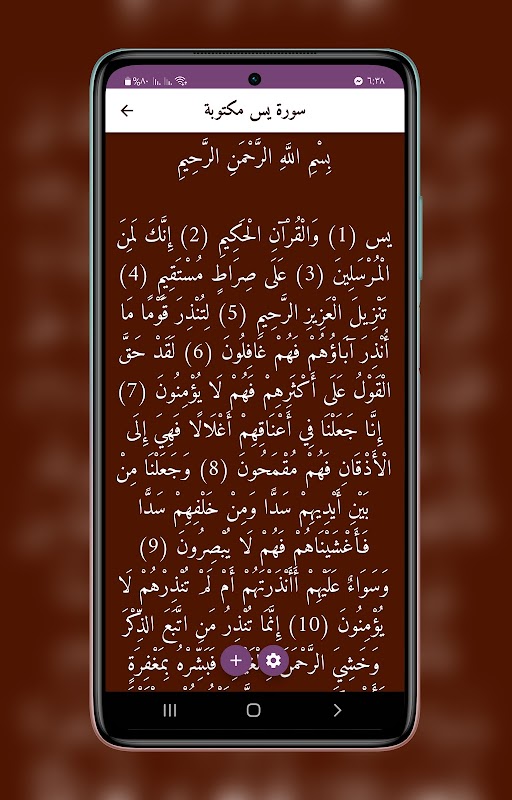 %٨٠ ٦:٣٨
سورة يس مكتوبة
بِسْمِ اللَّهِ الرَّحْمَنِ الرَّحِيمِ
يس (1) وَالْقُرْآنِ الْحَكِيمِ (2) إِنَّكَ لَمِنَ
الْمُرْسَلِينَ (3) عَلَى صِرَاطٍ مُسْتَقِيمٍ (4)
تَنْزِيلَ الْعَزِيزِ الرَّحِيمِ (5) لِتُنْذِرَ قَوْمًا مَا
أُنْذِرَ آبَاؤُهُمْ فَهُمْ غَافِلُونَ (6) لَقَدْ حَقَّ
الْقَوْلُ عَلَى أَكْثَرِهِمْ فَهُمْ لَا يُؤْمِنُونَ (7)
إِنَّا جَعَلْنَا فِي أَعْنَاقِهِمْ أَغْلَالًا فَهِيَ إِلَى
الْأَذْقَانِ فَهُمْ مُقْمَحُونَ (8) وَجَعَلْنَا مِنْ
بَيْنِ أَيْدِيهِمْ سَدًّا وَمِنْ خَلْفِهِمْ سَدًّا
فَأَغْشَيْنَاهُمْ فَهُمْ لَا يُبْصِرُونَ (9)
وَسَوَاءٌ عَلَيْهِمْ أَأَنْذَرْتَهُمْ أَمْ لَمْ تُنْذِرْهُمْ لَا
يُؤْمِنُونَ (10) إِنَّمَا تُنْذِرُ مَنِ اتَّبَعَ الذِّكْرَ
وَخَشِيَ الرَّحْمَنَ فَبَشِّرْهُ بِمَغْفِرَةٍ